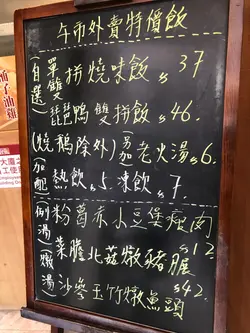 午市外賣特價飯
(自選)單雙拼燒味飯 $37
琵琶鴨雙拼飯 $46.
(燒鵝除外)另加老火湯 $6.
(加配)熱飲 $5. 凍飲 $7.
(例湯)粉葛赤小豆煲瘦肉
$12
(燉湯)菜膽北菇燉豬𦟌
沙參玉竹燉魚頭 $42.
柚子油雞